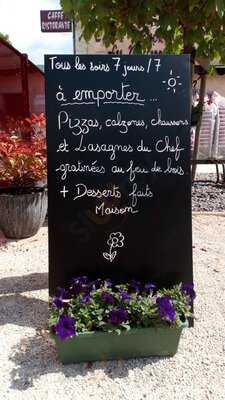 CAFFÉ
RISTORANTE
Tous les soirs 7 jours / 7
à emporter ...
Pizzas, calzones, chaussons
et Lasagnes du Chef
gratinées au feu de bois.
+ Desserts faits
Maison